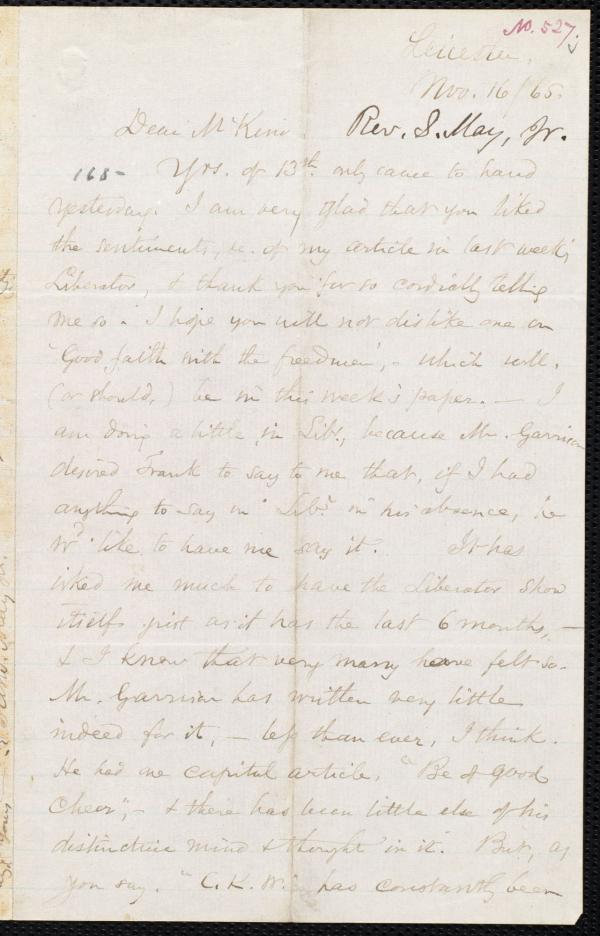 No. 527
Leicester,
Nov. 16/65.
Dear McKim. Rev. S. May, Jr.
168- Yrs. of 13th. only came to hand
yesterday. I am very glad that you liked
the sentiments, &c. of my article in last week's
Liberator, & thank you for so cordially telling
me so. I hope you will not dislike one on
'Good faith with the freedmen', - which will,
(or should,) be in this week's paper. - I
am doing a little in Libr., because Mr. Garrison
desired Frank to say to me that, if I had
anything to say in Libr. in his absence, he
wd. like to have me say it. It has
irked me much to have the Liberator show
itself just as it has the last 6 months, -
& I know that very many have felt so.
Mr. Garrison has written very little
indeed for it, - less than ever, I think.
He had one capital article, "Be of good
Cheer", - & there has been little else of his
distinctive mind & thought in it. But, as
you say, "C. K. W. has constantly been